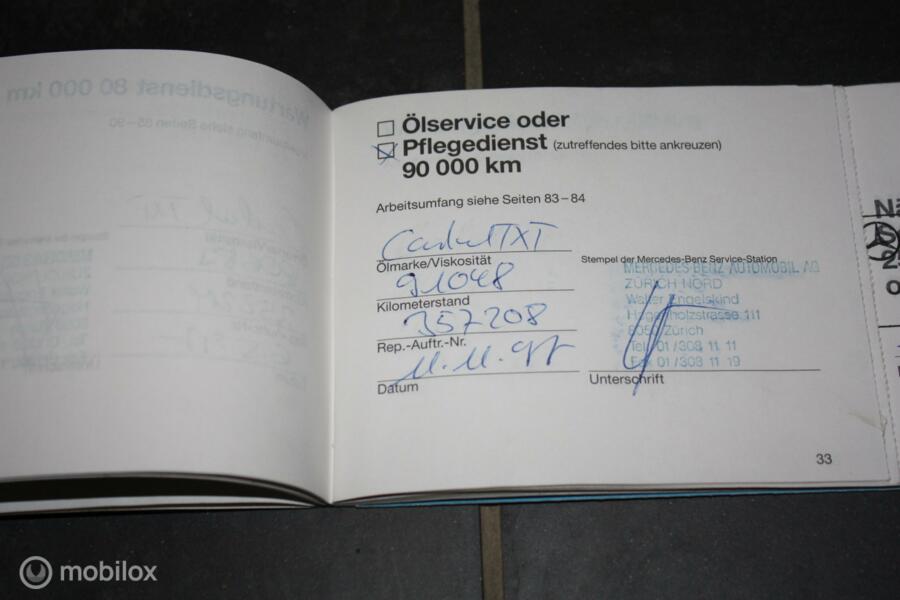 Wartungsdienst 80 000 km
Ölservice oder
Pflegedienst (zutreffendes bitte ankreuzen)
90 000 km
Arbeitsumfang siehe Seiten 83–84
Castrol TXT
Ölmarke/Viskosität
91048
Kilometerstand
357208
Rep.-Auftr.-Nr.
Datum
Stempel der Mercedes-Benz Service-Station
MERCEDES-BENZ AUTOMOBIL AG
ZÜRICH NORD
Hagenholzstrasse 111
8050 Zürich
Tel. 01/308 11 11
Fax 01/308 11 19
Unterschrift
33
mobilox